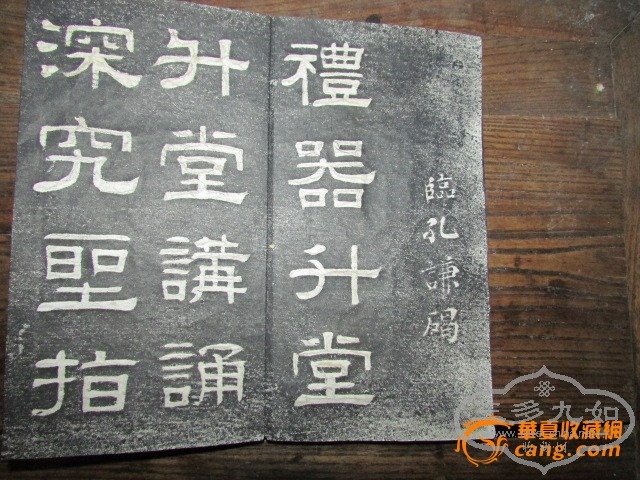 臨孔謙碣
禮器升堂
升堂講誦
深究聖指
華夏收藏網
cang.com